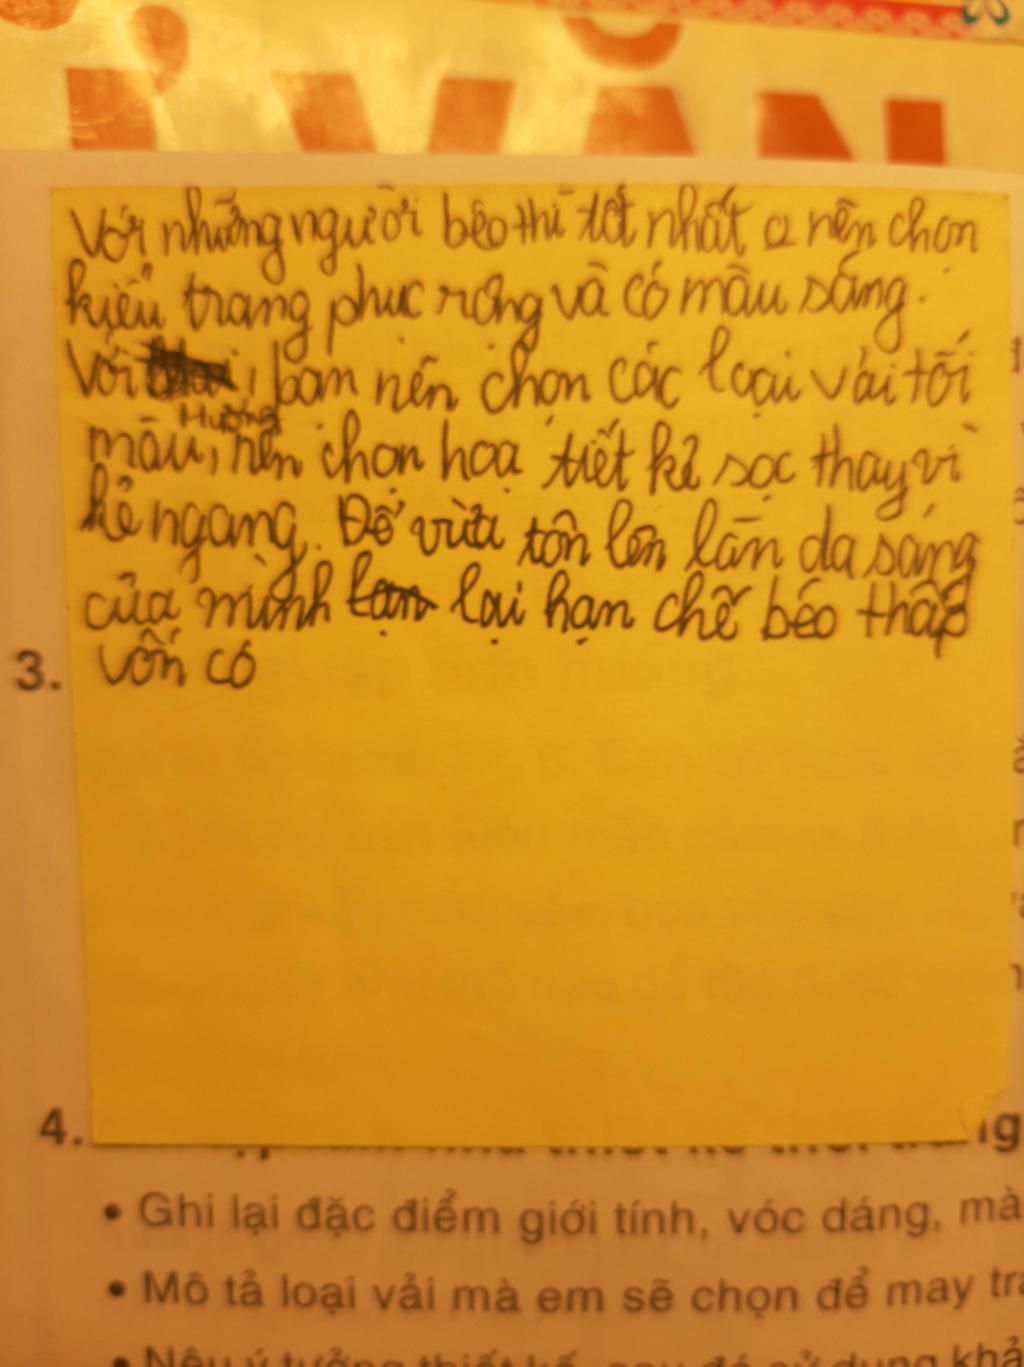 VĂN
Với những người béo thì tốt nhất a nên chọn
kiểu trang phục rộng và có màu sáng.
Với Hường, bạn nên chọn các loại vải tối
màu, nên chọn hoạ tiết kẻ sọc thay vì
kẻ ngang. Để vừa tôn lên làn da sáng
của mình lại hạn chế béo thấp
vốn có
3.
4.
• Ghi lại đặc điểm giới tính, vóc dáng, mà
• Mô tả loại vải mà em sẽ chọn để may tra
• Nêu ý tưởng thiết kế, sau đó sử dụng khả